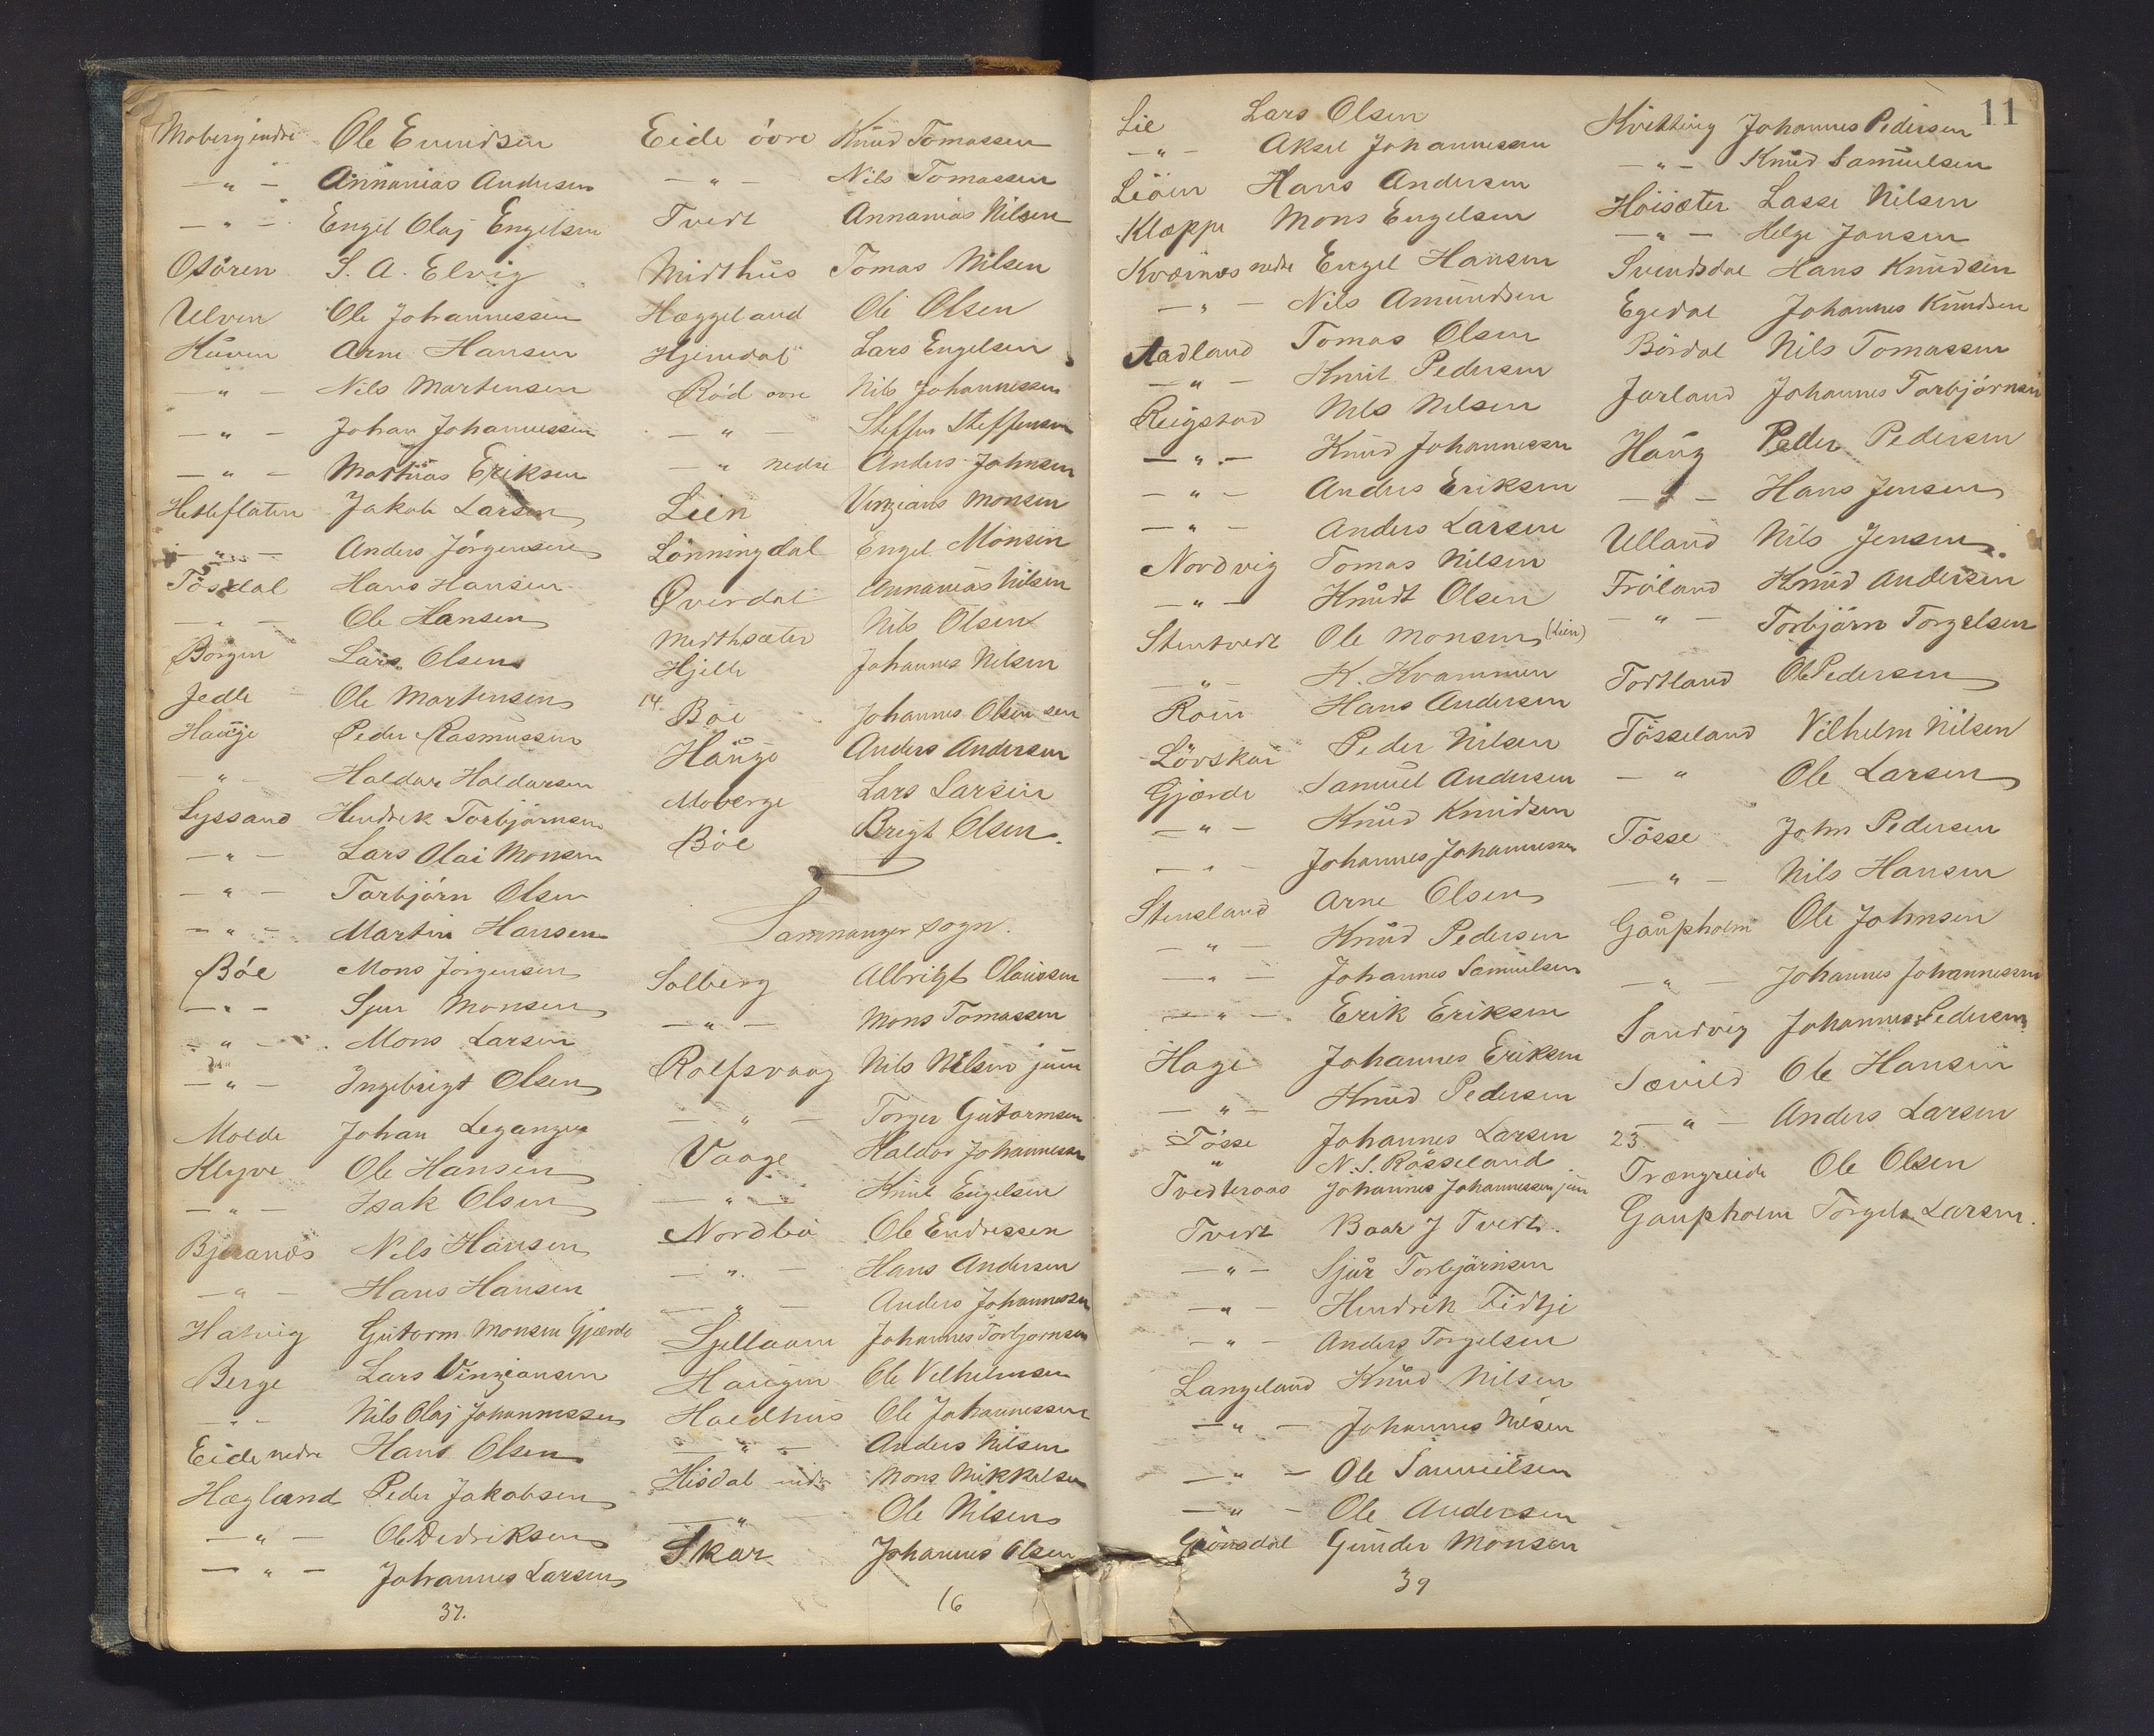 Moberg indre Ole Evindsen
— " — Annanias Andersen
— " — Engel Olaj Engelsen
Osören S. A. Elvig
Ulven Ole Johannessen
Kuven Arne Hansen
— " — Nils Martensen
— " — Johan Johannessen
— " — Mathias Eriksen
Hetleflaten Jakob Larsen
— " — Anders Jörgensen
Tösdal Hans Hansen
— " — Ole Hansen
Borgen Lars Olsen
Jedle Ole Martensen
Hauge Peder Rasmussen
— " — Haldor Haldorsen
Lyssand Hendrek Torbjørnsen
— " — Lars Olai Monsen
— " — Torbjörn Olsen
— " — Martin Hansen
Böe Mons Jörgensen
— " — Sjur Monsen
— " — Mons Larsen
— " — Ingebrigt Olsen
Molde Johan Leganger
Klyve Ole Hansen
— " — Isak Olsen
Bjaanæs Nils Hansen
— " — Hans Hansen
Hatvig Gutorm Monsen Gjærde
Berge Lars Vinzjansen
— " — Nils Olaj Johannessen
Eide nedre Hans Olsen
Hægland Peder Jakobsen
— " — Ole Dedriksen
— " — Johannes Larsen
37.
Eide övre Knud Tomassen
— " — Nils Tomassen
Tvedt Annanias Nilsen
Midthus Tomas Nilsen
Hæggeland Ole Olsen
Hjemdal Lars Engelsen
Röd övre Nils Johannessen
— " Steffen Steffensen
— " nedre Anders Johnsen
Lien Vinzians Monsen
Lönningdal Engel Monsen
Øvredal Annanias Nilsen
Midthsæter Nils Olsen
Hjelle Johannes Nilsen
14 Böe Johannes Olsen sen
Hauge Anders Andersen
Moberge Lars Larsen
Böe Brigt Olsen.
Samnanger sogn.
Solberg Albrigt Olaussen
— " — Mons Tomassen
Rolfsvaag Nils Nilsen jun
— " — Torger Gutormsen
Vaage Haldor Johannessen
— " — Knut Engelsen
Nordbö Ole Endressen
— " — Hans Andersen
— " — Anders Johannessen
Gjellaam Johannes Torbjornsen
Haugen Ole Velhelmsen
Haedhus Ole Johannessen
— " — Anders Nilsen
Hisdal indr Mons Mikkelsen
— " Ole Nilsen
Skar Johannes Olsen
16
11
Lie Lars Olsen
— " — Aksel Johannessen
Liöen Hans Andersen
Klæppe Mons Engelsen
Kværnæs nedre Engel Hansen
— " — Nils Amundsen
Aadland Tomas Olsen
— " — Knut Pedersen
Reigstad Nils Nilsen
— " — Knud Johannessen
— " — Anders Eriksen
— " — Anders Larsen
Nordvig Tomas Nilsen
— " — Knudt Olsen
Stentvedt Ole Monsen (Lien)
— " — K. Kvammen
Röen Hans Andersen
Lövskar Peder Nilsen
Gjærde Samuel Andersen
— " — Knud Knudsen
— " — Johannes Johannessen
Stensland Arne Olsen
— " — Knud Pedersen
— " — Johannes Samuelsen
— " — Erik Eriksen
Hage Johannes Eriksen
— " — Knud Pedersen
Tösse Johannes Larsen
" N. S. Rösseland
Tvedteraas Johannes Johannessen jun
Tvedt Baar J Tvedt.
— " — Sjur Torbjörnsen
— " — Hendrek Tidtje
— " — Anders Torgelsen
Langeland Knud Nilsen
— " — Johannes Nilsen
— " — Ole Samuelsen
— " — Ole Andersen
Grönsdal Gunder Monsen
39
Kvitting Johannes Pedersen
— " — Knud Samuelsen
Höisæter Lasse Nilsen
— " — Helge Jonsen
Svendsdal Hans Knudsen
Egedal Johannes Knudsen
Bördal Nils Tomassen
Jarland Johannes Torbjörnsen
Haug Peder Pedersen
— " — Hans Jensen
Ulland Nils Jensen.
Fröland Knud Andersen
— " — Torbjörn Torgelsen
Tortland Ole Pedersen
Tösseland Vilhelm Nilsen
— " Ole Larsen
Tösse John Pedersen
— " — Nils Hansen
Gaupholm Ole Johnsen
— " — Johannes Johannessen
Sandvig Johannes Pedersen
Sævild Ole Hansen
23 — " — Anders Larsen
Trængreide Ole Olsen
Gaupholm Torgels Larsen.